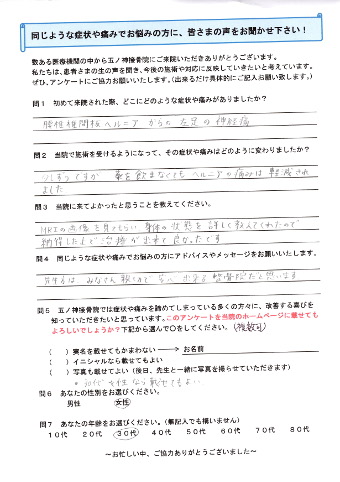 同じような症状や痛みでお悩みの方に、皆さまの声をお聞かせ下さい！
数ある医療機関の中から五ノ神接骨院にご来院いただきありがとうございます。
私たちは、患者さまの生の声を聞き、今後の施術や対応に反映していきたいと考えています。
ぜひ、アンケートにご協力お願いいたします。(出来るだけ具体的にご記入お願い致します。)
問1　初めて来院された際、どこにどのような症状や痛みがありましたか？
腰椎椎間板ヘルニア からの 左足の神経痛
問2　当院で施術を受けるようになって、その症状や痛みはどのように変わりましたか？
少しずつですが 薬を飲まなくても ヘルニアの痛みは 軽減され
ました
問3　当院に来てよかったと思うことを教えてください。
MRIの画像を見てもらい 身体の状態を 詳しく教えてくれたので
納得した上で治療が出来て良かったです
問4　同じような症状や痛みでお悩みの方にアドバイスやメッセージをお願いいたします。
先生方は みなさん 親しめて 思います
問5　五ノ神接骨院では症状や痛みを諦めてしまっている多くの方々に、改善する喜びを
知っていただきたいと思っています。このアンケートを当院のホームページに載せても
よろしいでしょうか？下記から選んで○をしてください。(複数可)
(　) 実名を載せてもかまわない → お名前
(　) イニシャルなら載せてもよい
(　) 写真も載せてよい（後日、先生と一緒に写真を撮らせていただきます）
30代 女性 なら 載せてもよい
問6　あなたの性別をお選びください。
男性　女性
問7　あなたの年齢をお選びください。（無記入でも構いません）
10代　20代　30代　40代　50代　60代　70代　80代
～お忙しい中、ご協力ありがとうございました～